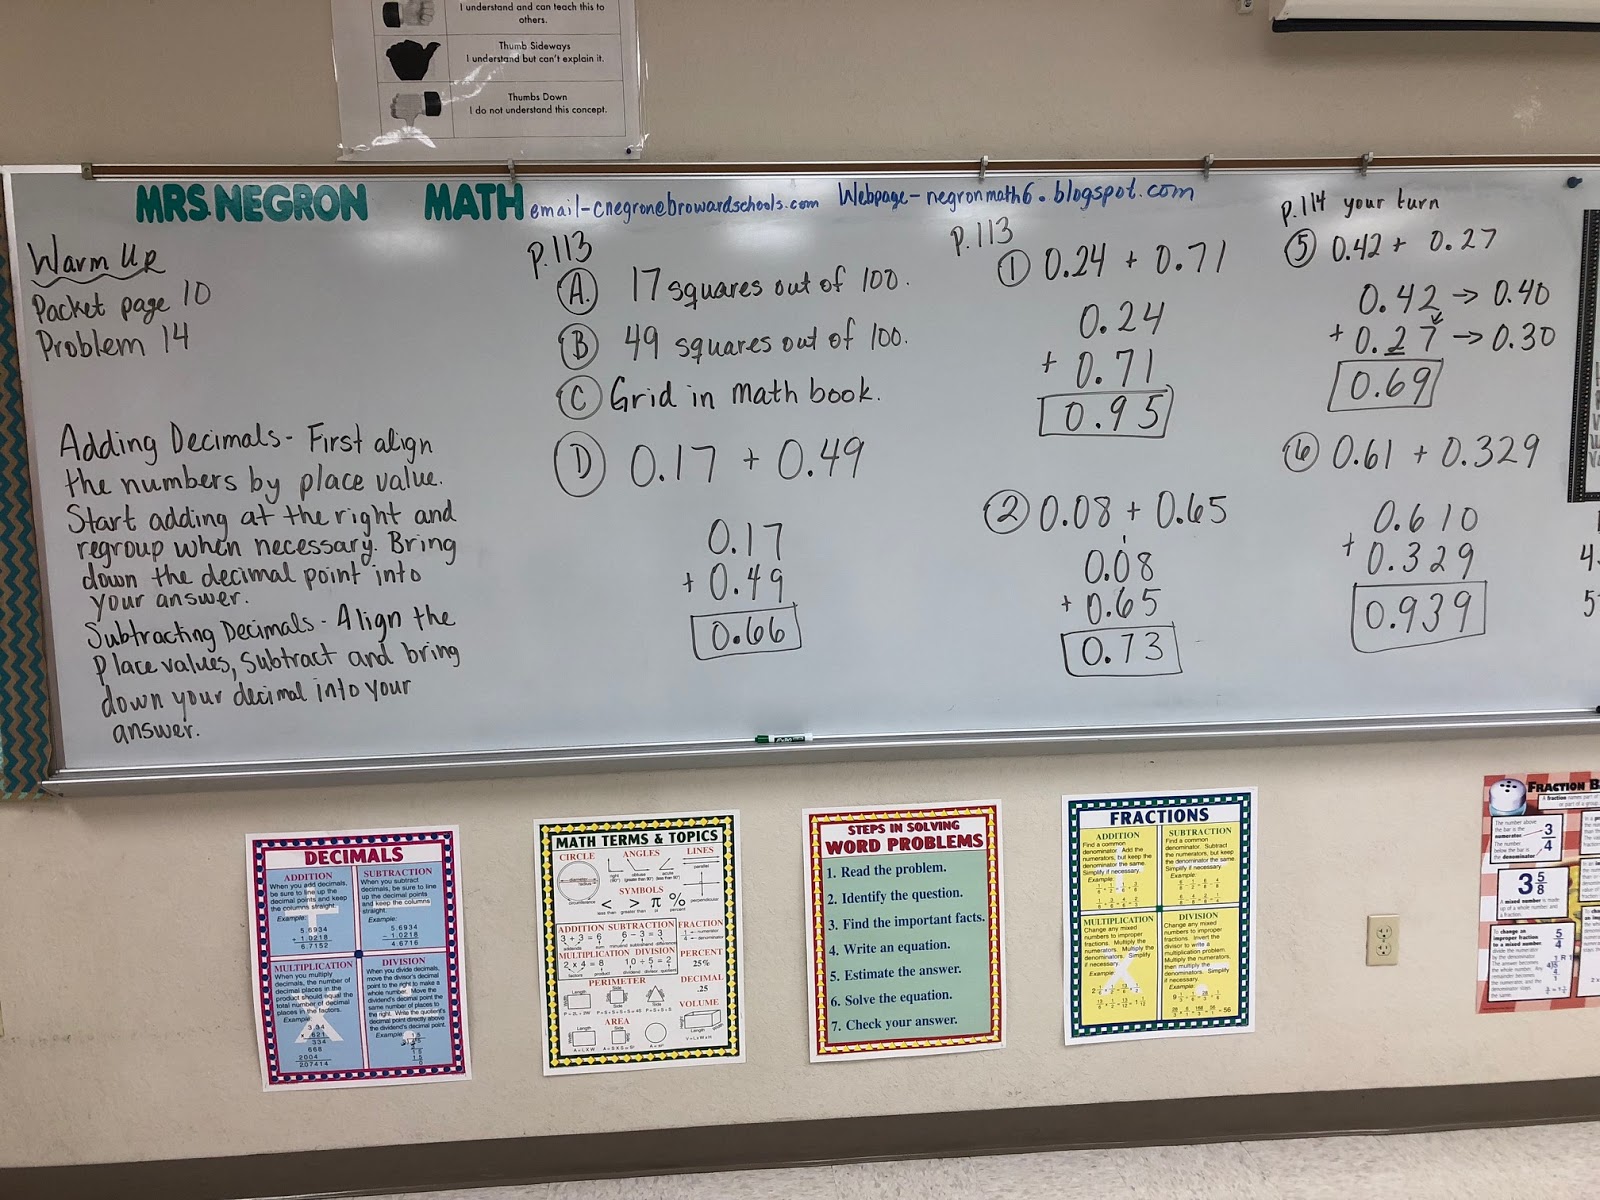 I understand and can teach this to
others.
Thumb Sideways
I understand but can't explain it.
Thumbs Down
I do not understand this concept.
MRS. NEGRON MATH
email-cnegron@browardschools.com
Webpage-negronmath6.blogspot.com
Warm Up
Packet page 10
Problem 14
Adding Decimals- First align
the numbers by place value.
Start adding at the right and
regroup when necessary. Bring
down the decimal point into
your answer.
Subtracting Decimals- Align the
Place values, Subtract and bring
down your decimal into your
answer.
p.113
A. 17 squares out of 100.
B 49 squares out of 100.
C Grid in math book.
D 0.17 + 0.49
0.17
+ 0.49
0.66
p.113
1 0.24 + 0.71
0.24
+ 0.71
0.95
2 0.08 + 0.65
1
0.08
+ 0.65
0.73
p.114 your turn
5 0.42 + 0.27
0.42 → 0.40
+ 0.27 → 0.30
0.69
6 0.61 + 0.329
0.610
+ 0.329
0.939
4.
5
DECIMALS
ADDITION
When you add decimals,
be sure to line up the
decimal points and keep
the columns straight.
Example:
5.6934
+ 1.0218
6.7152
SUBTRACTION
When you subtract
decimals, be sure to line
up the decimal points
and keep the columns
straight.
Example:
5.6934
- 1.0218
4.6716
MULTIPLICATION
When you multiply
decimals, the number of
decimal places in the
product should equal the
total number of decimal
places in the factors.
Example:
3.34
x .621
334
668
2004
2.07414
DIVISION
When you divide decimals,
move the divisor's decimal
point to the right to make a
whole number. Move the
dividend's decimal point the
same number of places to
the right. Write the quotient's
decimal point directly above
the dividend's decimal point.
Example:
MATH TERMS & TOPICS
CIRCLE
ANGLES
LINES
SYMBOLS
< > π %
less than greater than pi percent
ADDITION
3 + 3 = 6
SUBTRACTION
6 - 3 = 3
FRACTION
MULTIPLICATION
2 x 4 = 8
DIVISION
10 ÷ 5 = 2
PERCENT
25%
PERIMETER
DECIMAL
.25
AREA
VOLUME
STEPS IN SOLVING
WORD PROBLEMS
1. Read the problem.
2. Identify the question.
3. Find the important facts.
4. Write an equation.
5. Estimate the answer.
6. Solve the equation.
7. Check your answer.
FRACTIONS
ADDITION
Find a common
denominator. Add the
numerators, but keep the
denominator the same.
Simplify if necessary.
Example:
SUBTRACTION
Find a common
denominator. Subtract
the numerators, but keep
the denominator the same.
Simplify if necessary.
Example:
MULTIPLICATION
Change any mixed
numbers to improper
fractions. Multiply the
numerators. Multiply the
denominators. Simplify
if necessary.
Example:
DIVISION
Change any mixed
numbers to improper
fractions. Invert the
divisor to write a
multiplication problem.
Multiply the numerators,
then multiply the
denominators. Simplify
if necessary.
Example:
FRACTION
The number above
the bar is the
numerator
The number
below the bar is
the denominator
3/4
3 5/8
A mixed number is made
up of a whole number and
a fraction.
To change an
improper fraction
to a mixed number,
5/4